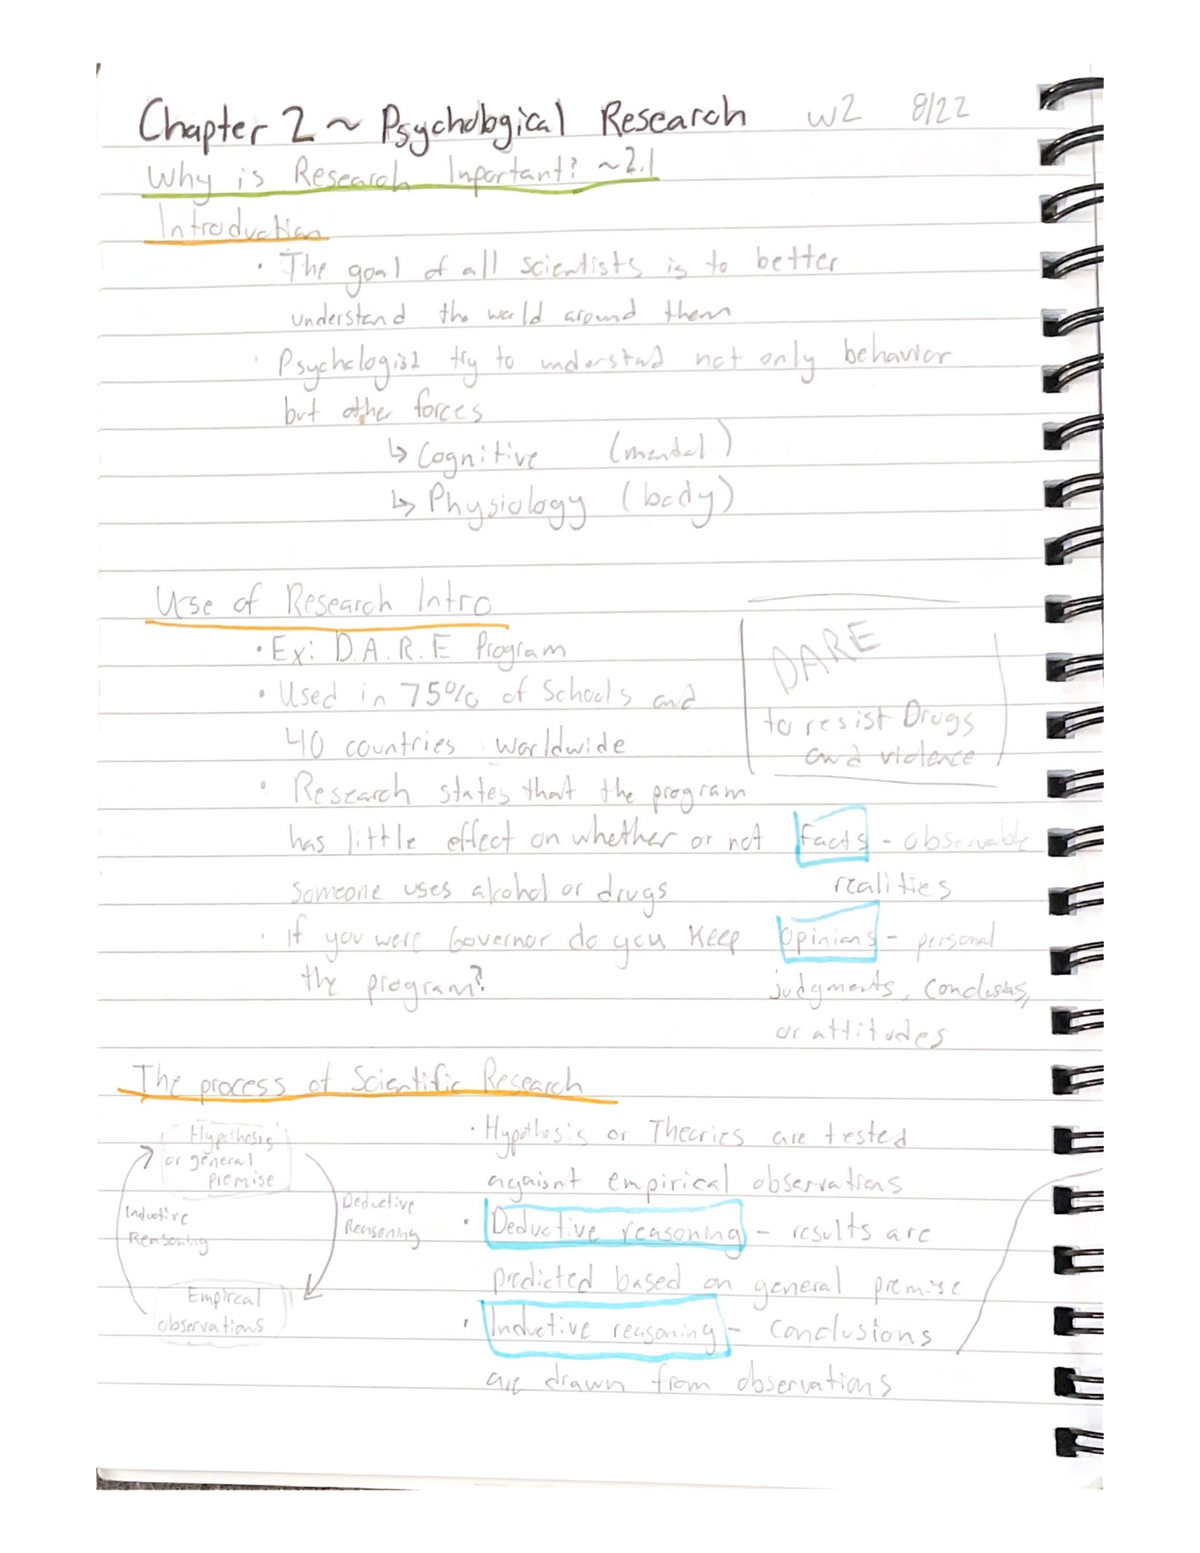 Chapter 2 ~ Psychological Research w2 8/22
Why is Research Inportant? ~2.1
Introduction
· The goal of all scientists is to better
understand the world around them
· Psychologist try to understad not only behavior
but other forces
↳ Cognitive (mental)
↳ Physiology (body)
Use of Research Intro
· Ex: D.A.R.E Program
· Used in 75% of Schools and
40 countries worldwide
DARE
to resist Drugs
and violence
· Research states that the program
has little effect on whether or not
someone uses alcohol or drugs
· If you were Governor do you Keep
the program?
Facts - observable
realities
Opinions - personal
judgments, conclusias,
or attitudes
The process of Scientific Research
Hypothesis
or general
premise
Inductive
Reasoning
Deductive
Reasoning
Empircal
observations
· Hypothesis or Theories are tested
agaisnt empirical observations
· Deductive reasoning - results are
predicted based on general premise
· Inductive reasoning - conclusions
are drawn from observations